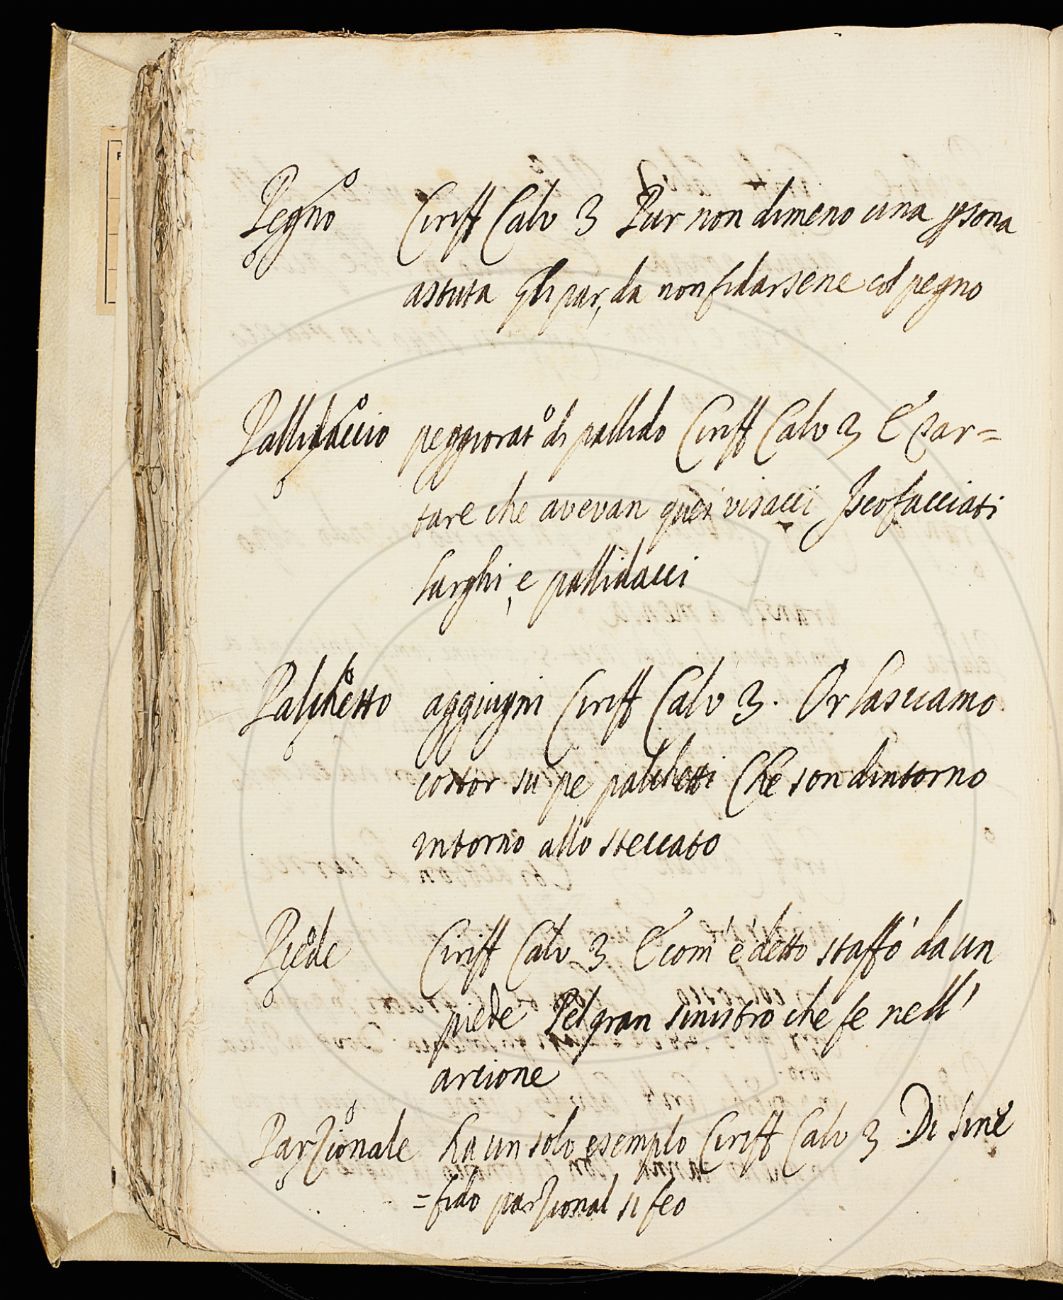 Pegno Ciriff Calv 3 Pur non dimeno una psona
astuta gli par, da non fidarsene col pegno
Pallidaccio peggiorat.o di pallido Ciriff Calv 3 E Tar=
tare che avevan quei visacci Iscofacciati
larghi, e pallidacci
Palchetto aggiugni Ciriff Calv 3. Or lasciamo
costor su pe palchetti Che son dintorno
intorno allo steccato
Piede Ciriff Calv 3 E com' è detto staffò da un
piede Pel gran sinistro che fe nell'
arcione
Parzionale ha un solo esemplo Ciriff Calv 3 Di Sine
=fido parzional si feo